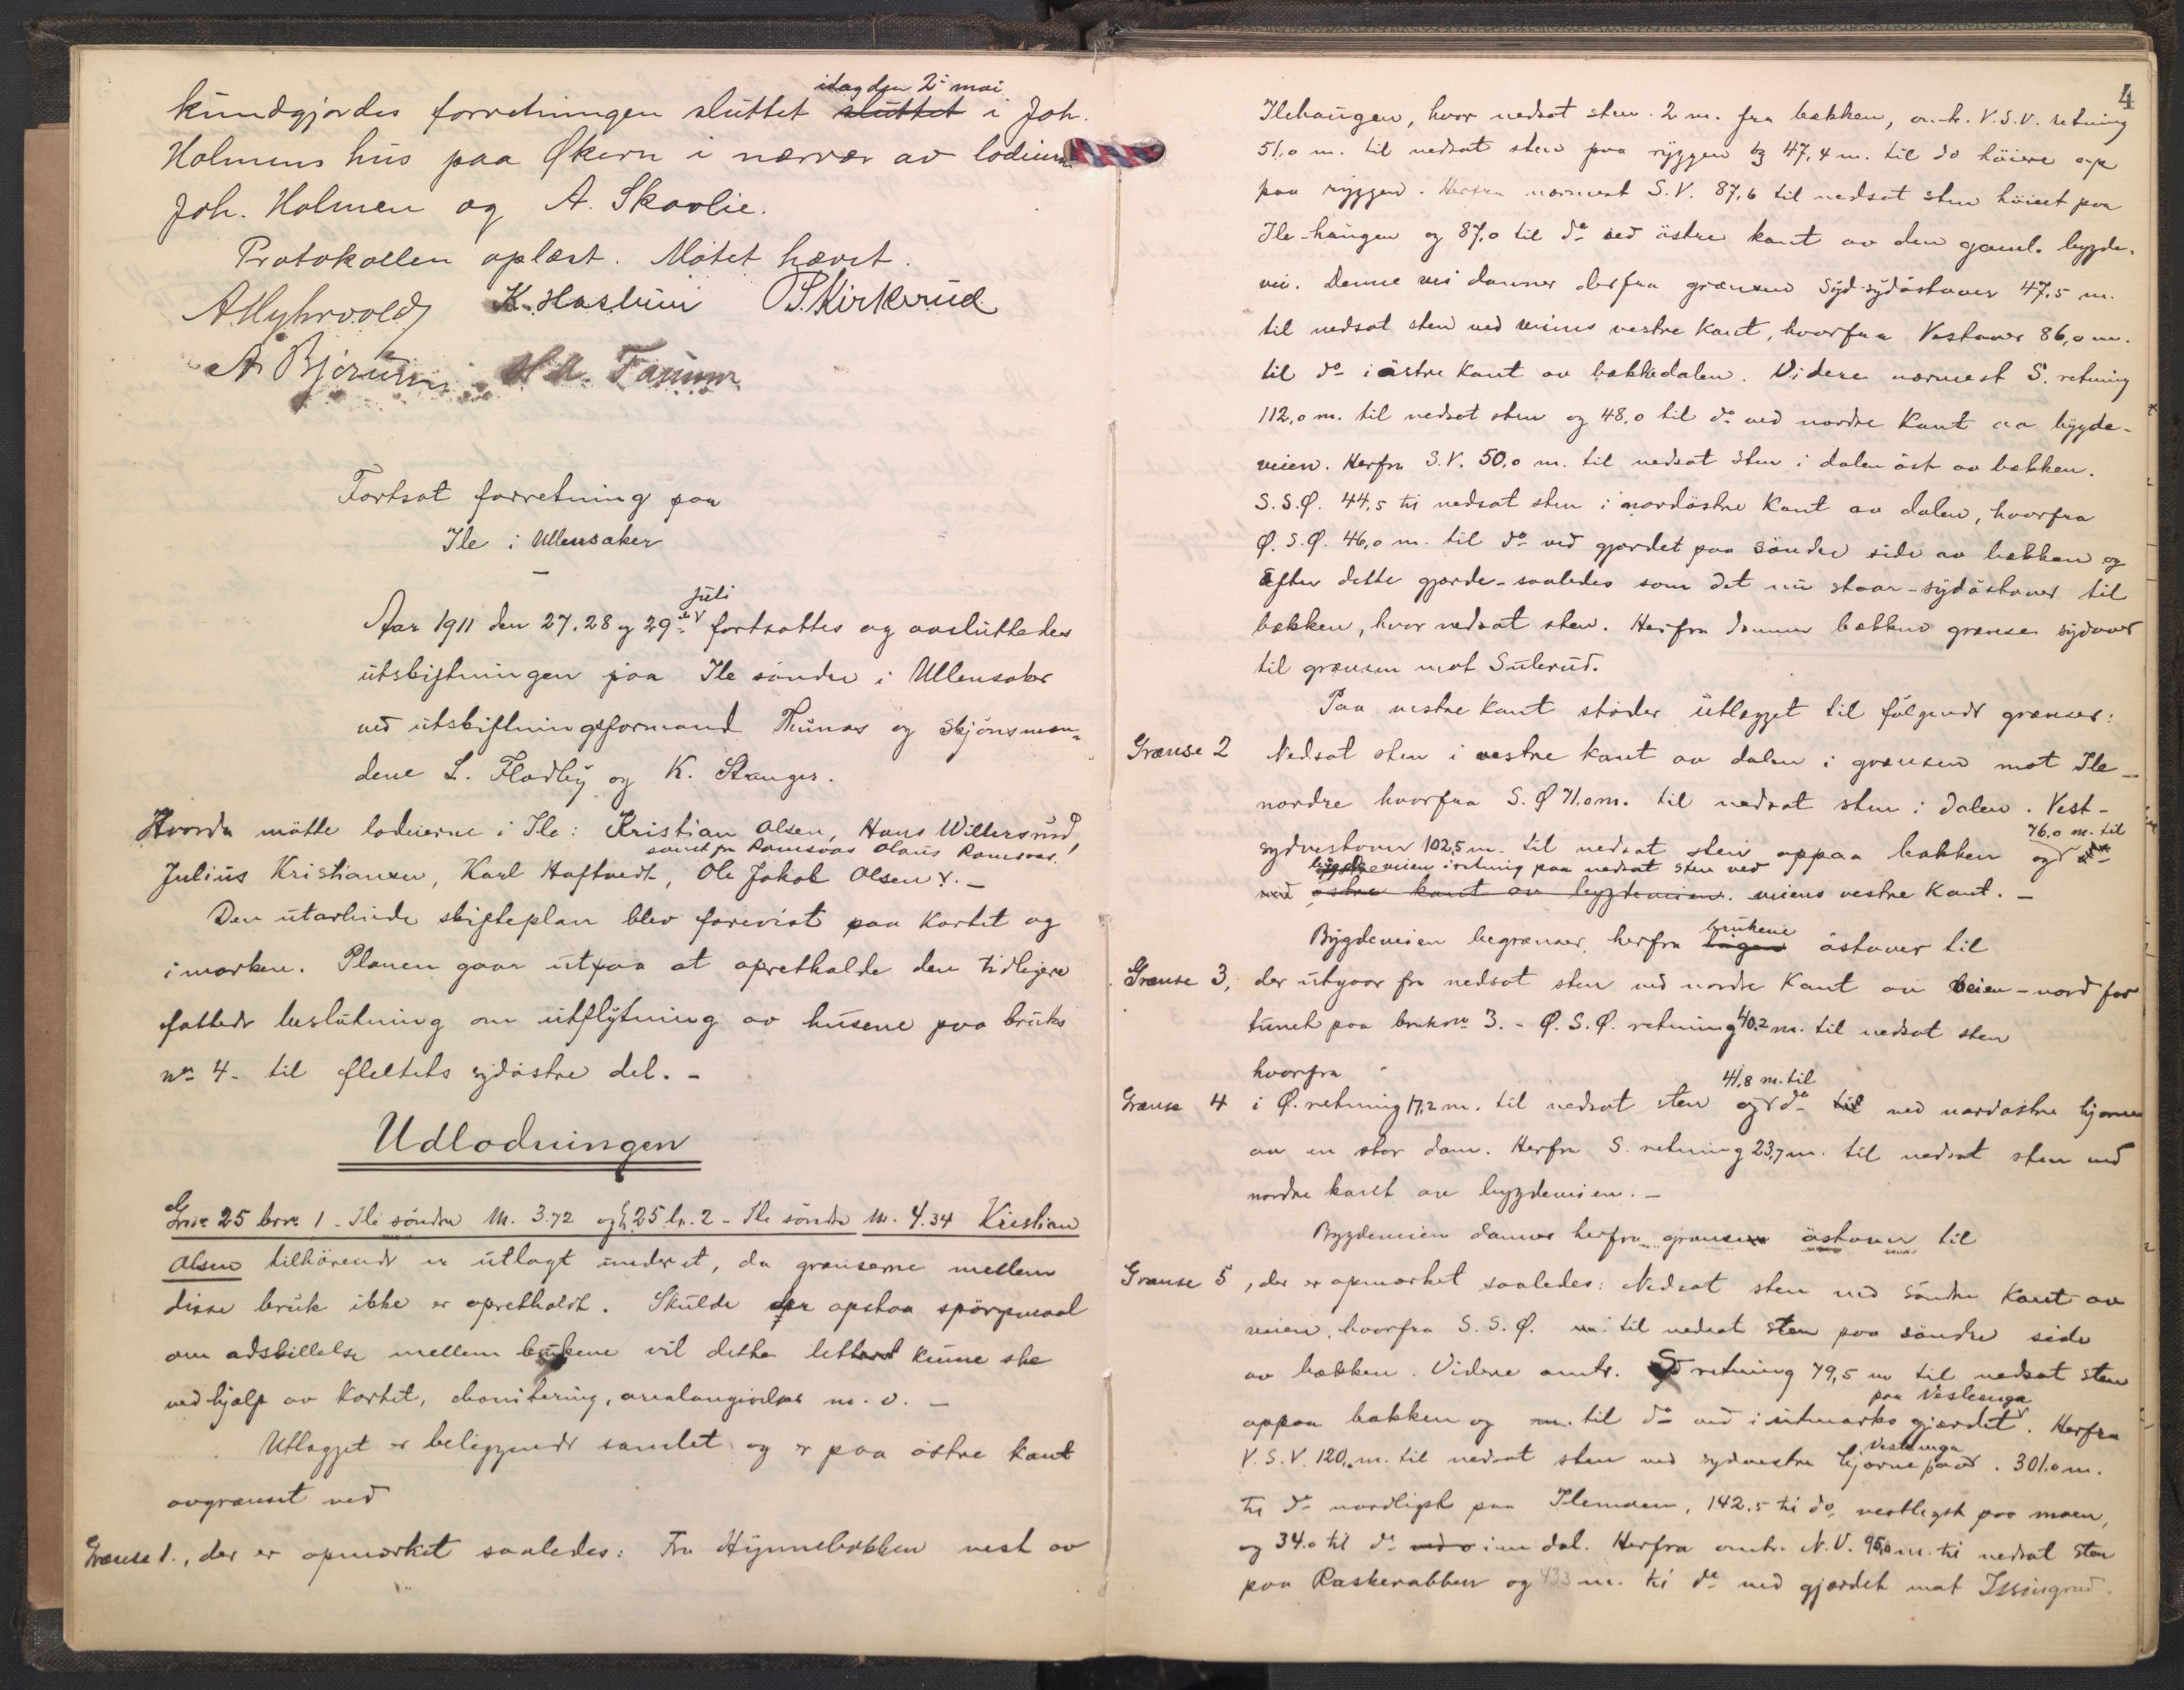 idag den 2. mai
kundgjordes forretningen sluttet sluttet i Joh.
Holmens hus paa Økern i nærvær av lodeierne
Joh. Holmen og A. Skovlie.
Protokollen oplæst. Møtet hævet.
A. Myhrvold K. Haslum O. S. Kirkerud
A. Bjerum H. A. Farum
Fortsat forretning paa
Ile i Ullensaker
juli
Aar 1911 den 27. 28 og 29de fortsattes og avsluttedes
utskiftningen paa Ile søndre i Ullensaker
ved utskiftningsformand Thunæs og skjønsmæn-
dene L. Flodby og K. Stanger.
Hvorda møtte lodeierne i Ile: Kristian Olsen, Hans Willersrud,
samt fra Ramsvas Olaus Ramsvas.
Julius Kristiansen, Karl Haftvedt, Ole Jakob Olsen. -
Den utarbeide skifteplan blev forevist paa kartet og
i marken. Planen gaar ut paa at opretholde den tidligere
fattede beslutning om utflytning av husene paa bruks
no 4 - til feltets sydøstre del. -
Udlodningen
Grno 25 brno 1 - Ile søndre M. 3.72 og g. 25 br. 2 - Ile søndre M. 4.34 Kristian
Olsen tilhørende er utlagt underet, da grænserne mellem
disse bruk ikke er opretholdt. Skulde der opstaa spørsmaal
om adskillelse mellem brukene vil dette lettest kunne ske
ved hjælp av kartet, bonitering, arealangivelser m. v. -
Utlægget er beliggende samlet og er paa østre kant
avgrænset ved
Grænse 1., der er opmerket saaledes: Fra Hynnebækken vest av
4
Ilehaugen, hvor nedsat sten 2 m. fra bækken, omtr. V.S.V. retning
51,0 m. til nedsat sten paa ryggen og 47,4 m. til do høiere op
paa ryggen. Herfra nærmest S.V. 87,6 til nedsat sten høiest paa
Ile-haugen og 87,0 til do ved østre kant av den gamle bygde-
vei. Denne vei danner derfra grænsen syd-sydøstover 47,5 m.
til nedsat sten ved veiens vestre kant, hvorfra Vestover 86,0 m.
til do i østre kant av bækkedalen. Videre nærmest S. retning
112,0 m. til nedsat sten og 48,0 til do ved nordre kant av bygde-
veien. Herfra S.V. 50,0 m. til nedsat sten i dalen øst av bækken.
S.S.Ø. 44,5 til nedsat sten i nordøstre kant av dalen, hvorfra
Ø.S.Ø. 46,0 m. til do ved gjærdet paa søndre side av bækken og
efter dette gjærde - saaledes som det nu staar - sydøstover til
bækken, hvor nedsat sten. Herfra danner bækken grænsen sydover
til grænsen mot Sulerud.
Paa vestre kant støder utlægget til følgende grænser:
Grænse 2 Nedsat sten i vestre kant av dalen i grænsen mot Ile
nordre hvorfra S.Ø 71,0 m. til nedsat sten i dalen. Vest-
76,0 m. til
sydvestover 102,5 m. til nedsat sten oppaa bakken og do
bygdeveien i retning paa nedsat sten ved
ved østre kant av bygdeveien. veiens vestre kant. -
brukene
Bygdeveien begrænser herfra østover til
Grænse 3, der utgaar fra nedsat sten ved nordre kant av veien - nord for
tunet paa bruksno 3. - Ø.S.Ø. retning 40,2 m. til nedsat sten
hvorfra
41,8 m. til
Grænse 4 i Ø. retning 17,2 m. til nedsat sten og do til ved nordøstre hjørne
av en stor dam. Herfra S. retning 23,7 m. til nedsat sten ved
nordre kant av bygdeveien. -
Bygdeveien danner herfra grænsen østover til
Grænse 5, der er opmerket saaledes: Nedsat sten ved søndre kant av
veien, hvorfra S.S.Ø. m. til nedsat sten paa søndre side
av bækken. Videre omtr. S retning 79,5 m til nedsat sten
paa Vestenga
oppaa bakken og m. til do ved i utmarks gjærdet. Herfra
Vestenga
V.S.V. 120,0 m. til nedsat sten ved sydvestre hjørne paa. 301,0 m.
til do nordligst paa Ilemoen, 142,5 til do vestligst paa moen,
og 34,0 til do ved o i en dal. Herfra omtr. N.V. 95,0 m. til nedsat sten
paa Raskerabben og 433 m. til do ved gjærdet mot Issingrud.